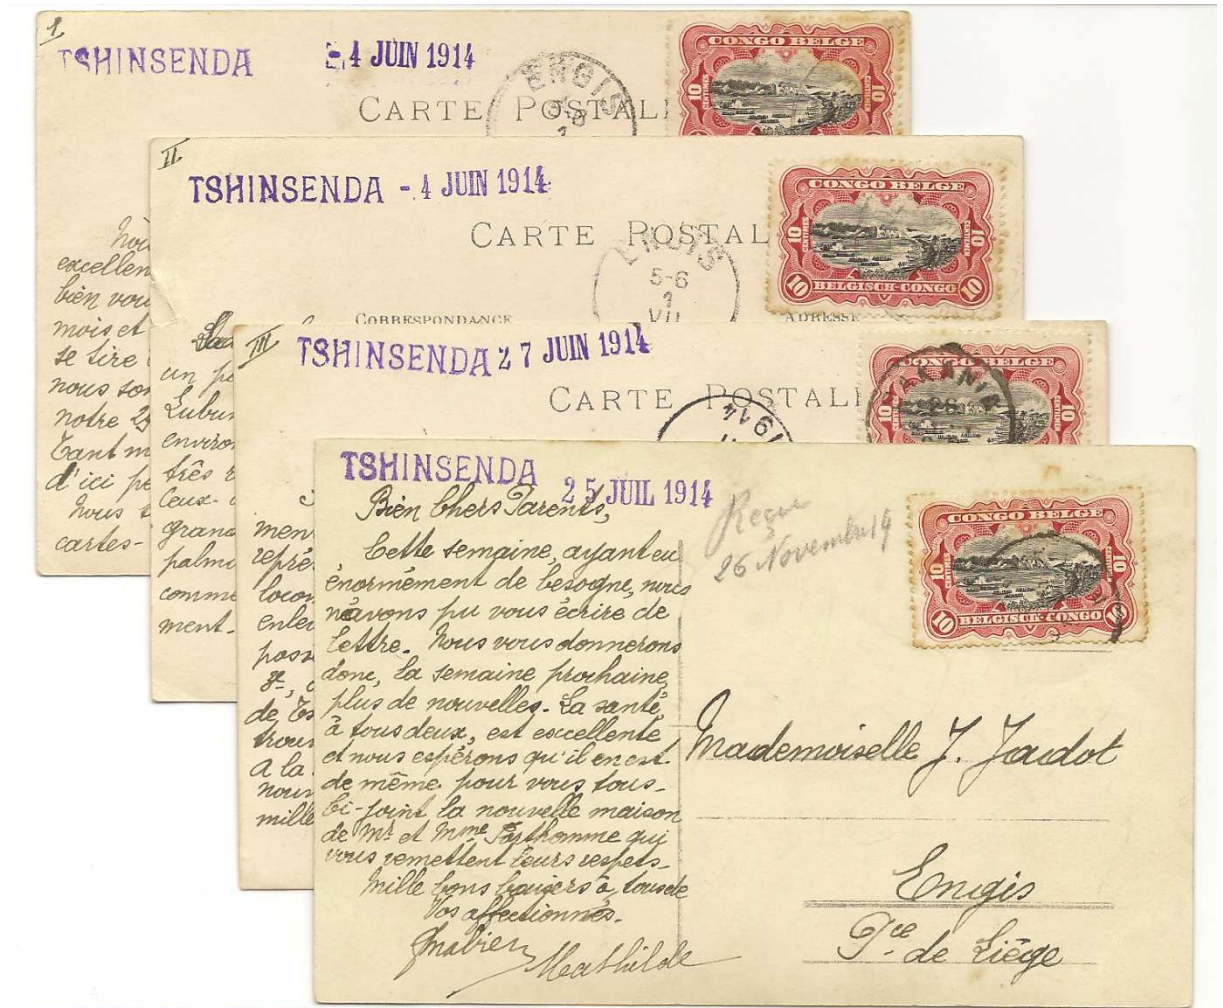 1
TSHINSENDA -4 JUIN 1914
ENGIS
CARTE POSTAL
CONGO BELGE
10 10
CENTIMES CENTIEMEN
excellen
bien vou
mois et
se tire
nous son
notre 25
Tant m
d'ici pe
Nous
cartes-
II
TSHINSENDA -4 JUIN 1914
CARTE POSTAL
ENGIS
5-6
1
VII
CONGO BELGE
10 10
CENTIMES CENTIEMEN
10 BELGISCH-CONGO 10
CORRESPONDANCE
ADRESSE
un pe
Lubum
environ
très
Ceux-
grand
palm
comme
ment-
III
TSHINSENDA 27 JUIN 1914
CARTE POSTAL
1914
CONGO BELGE
10 10
men
repré
locom
enle
poss
de
trou
A la
nouv
mille
TSHINSENDA 25 JUIL 1914
Reçue
26 Novembre 14
CONGO BELGE
10 10
CENTIMES
10 BELGISCH-CONGO 10
Bien Chers Parents,
Cette semaine, ayant eu
énormément de besogne, nous
n'avons pu vous écrire de
lettre. Nous vous donnerons
donc, la semaine prochaine,
plus de nouvelles. La santé,
à tous deux, est excellente
et nous espérons qu'il en est
de même pour vous tous-
Ci-joint la nouvelle maison
de Mr et Mme Parthomme qui
vous remettent leurs respets-
Mille bons baisers à tous de
Vos affectionnés.
Mathilde
Mademoiselle J. Jadot
Engis
Pce de Liège